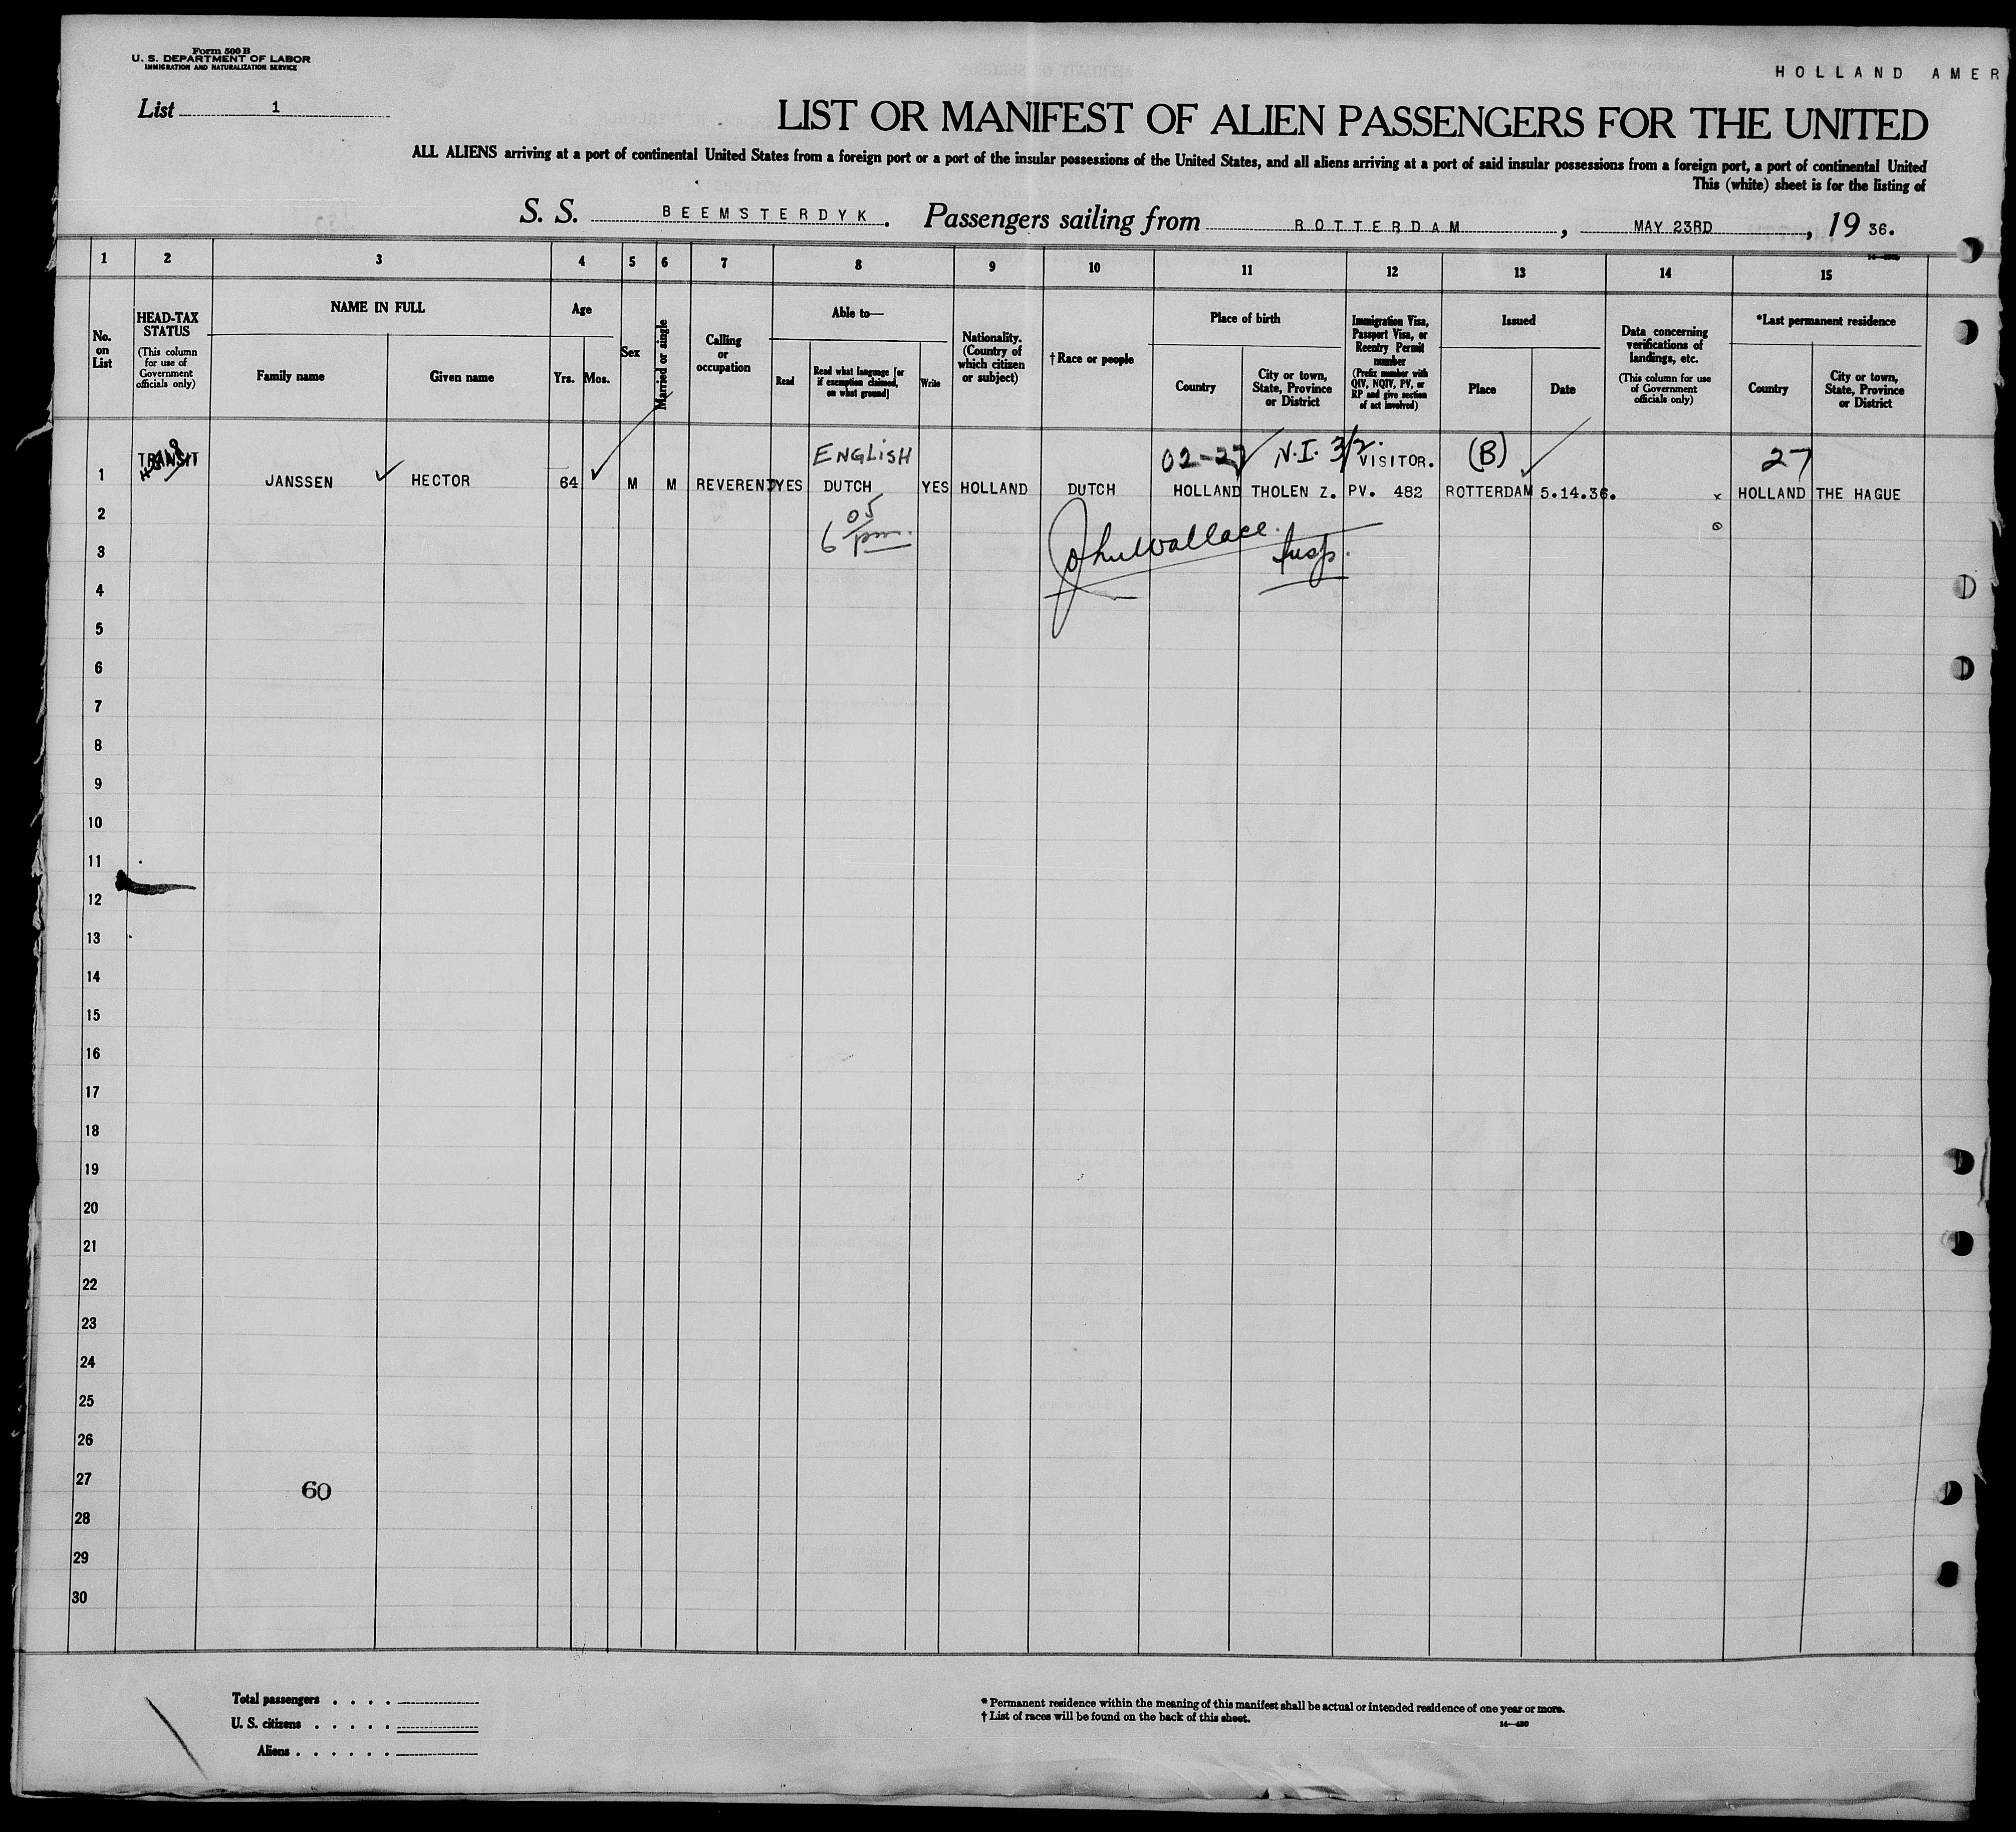 Form 500 B
U. S. DEPARTMENT OF LABOR
IMMIGRATION AND NATURALIZATION SERVICE
HOLLAND AMER
List 1
LIST OR MANIFEST OF ALIEN PASSENGERS FOR THE UNITED
ALL ALIENS arriving at a port of continental United States from a foreign port or a port of the insular possessions of the United States, and all aliens arriving at a port of said insular possessions from a foreign port, a port of continental United
This (white) sheet is for the listing of
S. S. BEEMSTERDYK. Passengers sailing from ROTTERDAM, MAY 23RD, 19 36.
1 2 3 4 5 6 7 8 9 10 11 12 13 14 15
No. on List
HEAD-TAX STATUS
(This column for use of Government officials only)
NAME IN FULL
Family name
Given name
Age
Yrs. Mos.
Sex
Married or single
Calling or occupation
Able to—
Read
Read what language [or if exemption claimed, on what ground]
Write
Nationality. (Country of which citizen or subject)
†Race or people
Place of birth
Country
City or town, State, Province or District
Immigration Visa, Passport Visa, or Reentry Permit number
(Prefix number with QIV, NQIV, PV, or RP and give section of act involved)
Issued
Place
Date
Data concerning verifications of landings, etc.
(This column for use of Government officials only)
*Last permanent residence
Country
City or town, State, Province or District
TRANSIT ENGLISH 02-27 N.I. 3/2. VISITOR. (B) 27
1 JANSSEN HECTOR 64 M M REVEREND YES DUTCH YES HOLLAND DUTCH HOLLAND THOLEN Z. PV. 482 ROTTERDAM 5.14.36. x HOLLAND THE HAGUE
2
6 05 pm.
John Wallace Insp.
3
4
5
6
7
8
9
10
11
12
13
14
15
16
17
18
19
20
21
22
23
24
25
26
27
60
28
29
30
Total passengers . . . .
U. S. citizens . . . . .
Aliens . . . . . .
* Permanent residence within the meaning of this manifest shall be actual or intended residence of one year or more.
† List of races will be found on the back of this sheet.
14—430